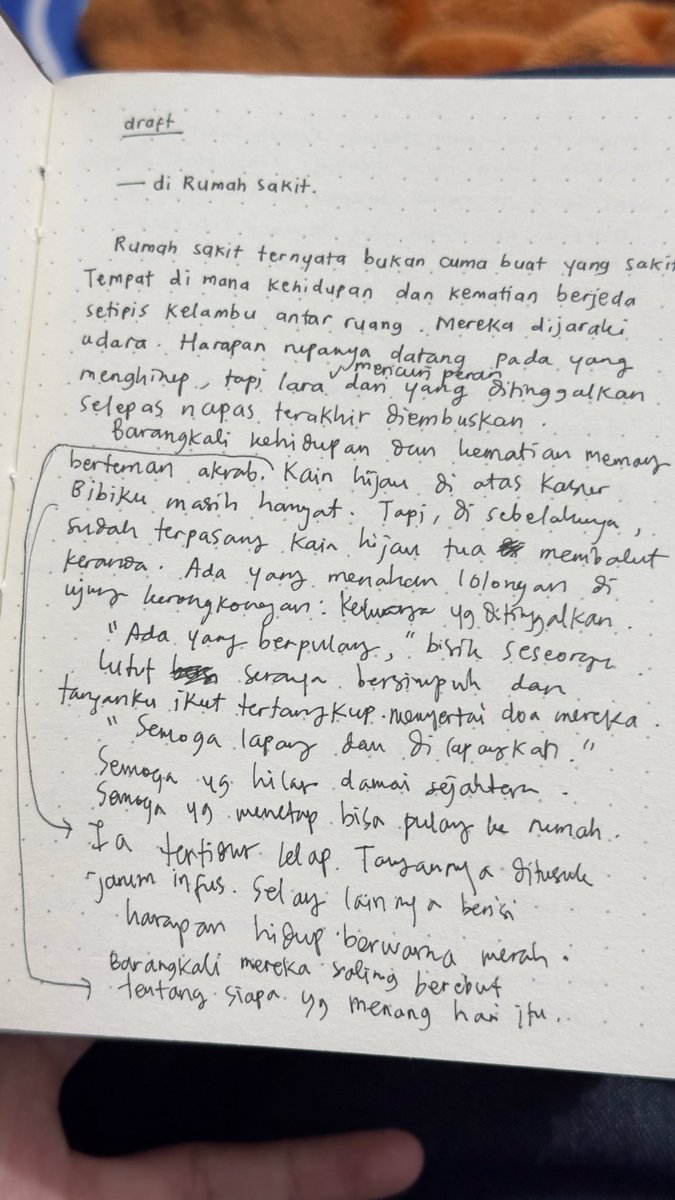 draft
— di Rumah sakit.
Rumah sakit ternyata bukan cuma buat yang sakit
Tempat di mana kehidupan dan kematian berjeda
setipis kelambu antar ruang. Mereka dijaraki
udara. Harapan rupanya datang pada yang
mencuri peran
menghirup, tapi lara dari yang ditinggalkan
selepas napas terakhir diembuskan.
Barangkali kehidupan dan kematian memang
berteman akrab. Kain hijau di atas kasur
Bibiku masih hangat. Tapi, di sebelahnya,
sudah terpasang kain hijau tua membalut
keranda. Ada yang menahan lolongan di
ujung kerongkongan: keluarga yg ditinggalkan.
"Ada yang berpulang," bisik seseorang
lutut seraya bersimpuh dan
tanganku ikut tertangkup menyertai doa mereka.
"Semoga lapang dan dilapangkan."
Semoga yg hilar damai sejahtera.
Semoga yg menetap bisa pulang ke rumah.
Ia tertidur lelap. Tangannya ditusuk
jarum infus. Selang lainnya berisi
harapan hidup berwarna merah.
Barangkali mereka saling berebut
tentang siapa yg menang hari itu.